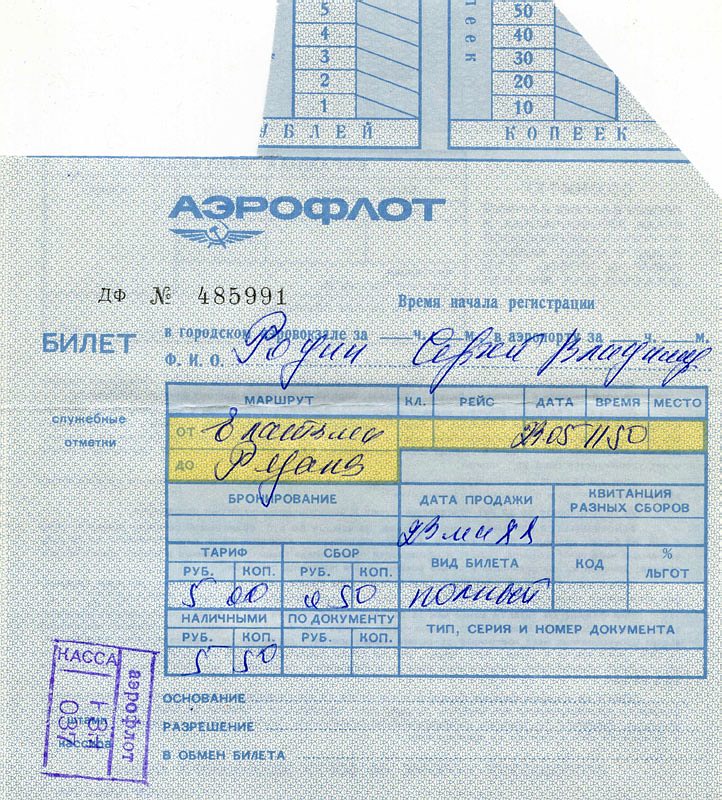 5
4
3
2
1
50
40
30
20
10
УБЛЕЙ
КОПЕЕК
АЭРОФЛОТ
ДФ № 485991
Время начала регистрации
БИЛЕТ
в городском аэровокзале за ч. м. в аэропорту за ч. м.
Ф. И. О. Родин Сергей Владимир
МАРШРУТ КЛ. РЕЙС ДАТА ВРЕМЯ МЕСТО
служебные
отметки
ОТ Еластьма 23.05 1150
ДО Рязань
БРОНИРОВАНИЕ ДАТА ПРОДАЖИ КВИТАНЦИЯ
РАЗНЫХ СБОРОВ
23 мая
ТАРИФ СБОР ВИД БИЛЕТА КОД %
ЛЬГОТ
РУБ. КОП. РУБ. КОП.
5 00 0 50 полный
НАЛИЧНЫМИ ПО ДОКУМЕНТУ ТИП, СЕРИЯ И НОМЕР ДОКУМЕНТА
РУБ. КОП. РУБ. КОП.
5 50
КАССА
аэрофлот
037
штамп
кассира
ОСНОВАНИЕ
РАЗРЕШЕНИЕ
В ОБМЕН БИЛЕТА